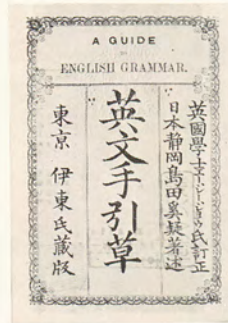 A GUIDE
TO
ENGLISH GRAMMAR.
英國學士マージョージョウ氏訂正
日本静岡島田奚疑著述
英文手引草
東京 伊東氏藏版